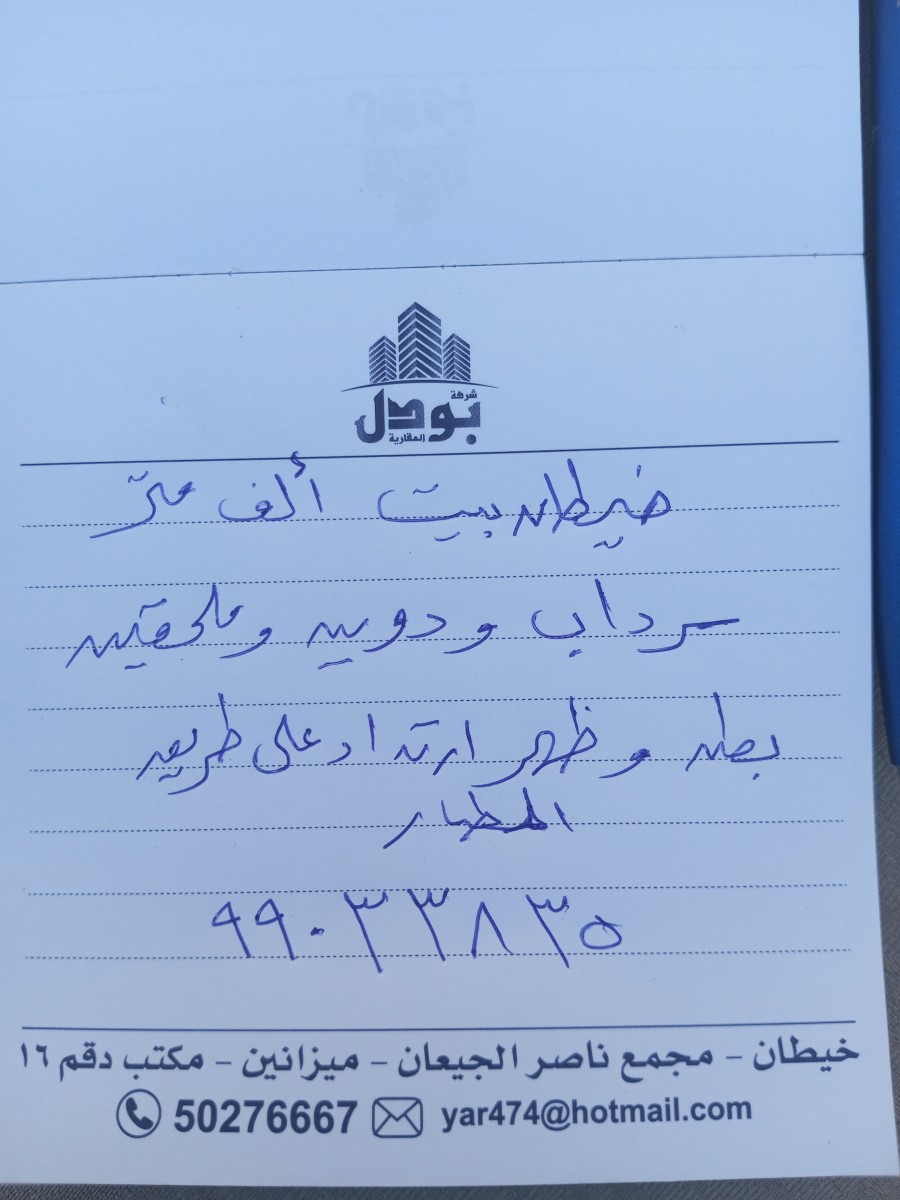 شركة
بودل
العقارية
خيطان بيت ألف متر
سرداب و دورين وملحقين
بطن و ظهر ارتداد على طريق
المطار
٩٩٠٣٣٨٣٥
خيطان - مجمع ناصر الجيعان - ميزانين - مكتب دقم ١٦
50276667 yar474@hotmail.com